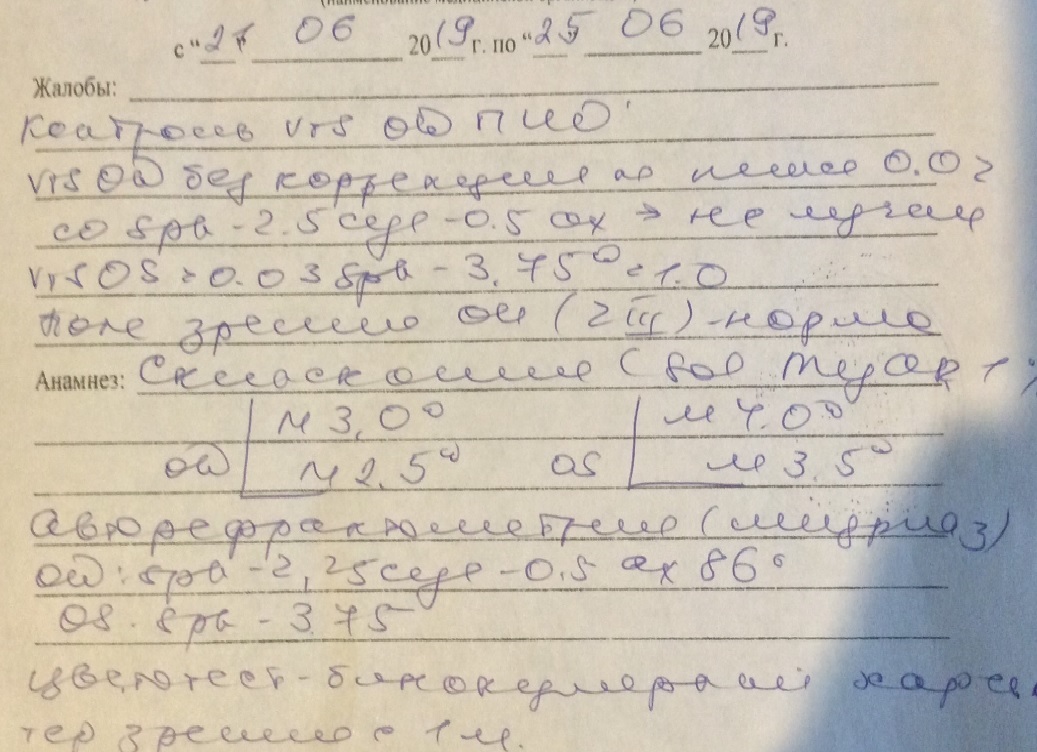 с "21" 06 2019 г. по "25" 06 2019 г.
Жалобы:
Контроль vis OD ПИО
vis OD без коррекции не ниже 0.02
со sph -2.5 cyl -0.5 ax → не лучше
vis OS = 0.03 sph - 3.75 D = 1.0
Поле зрения ou ( ) - норма
Анамнез: Скиаскопия ( Sol
м 3,0 D м 4.0 D
OD м 2.5 D OS м 3.5 D
Авторефрактометрия (мидриаз)
OD: sph -2,25 cyl -0.5 ax 86°
OS. sph - 3.75
Цветотест - бинокулярный харак
тер зрения с 1 м.